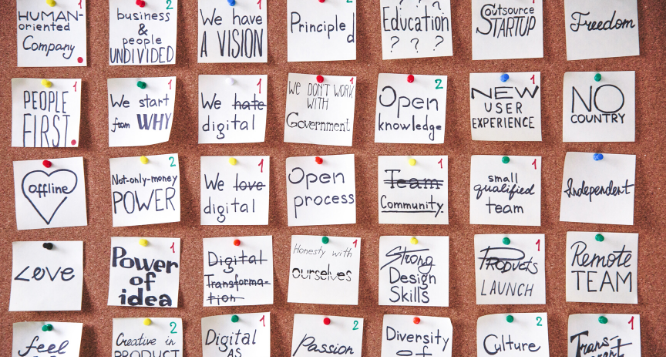 HUMAN-
oriented
Company
1
business
&
people
UNDIVIDED
2
We have
A VISION
1
Principled
Education
? ? ?
Outsource
STARTUP
1
Freedom
PEOPLE
FIRST.
1
We start
from WHY
1
We hate
digital
1
We DON'T WORK
WITH
Government
1
Open
knowledge
2
NEW
USER
EXPERIENCE
1
NO
COUNTRY
offline
Not-only-money
POWER
2
We love
digital
1
Open
process
Team
Community.
1
small
qualified
team
2
Independent
Love
Power
of
idea
1
Digital
Transforma-
tion
Honesty with
ourselves
1
Strong
Design
Skills
Products
LAUNCH
1
Remote
TEAM
feel
Creative in
PRODUCT
2
Digital
AS
1
Passion
2
Diversity
of
1
Culture
2
1